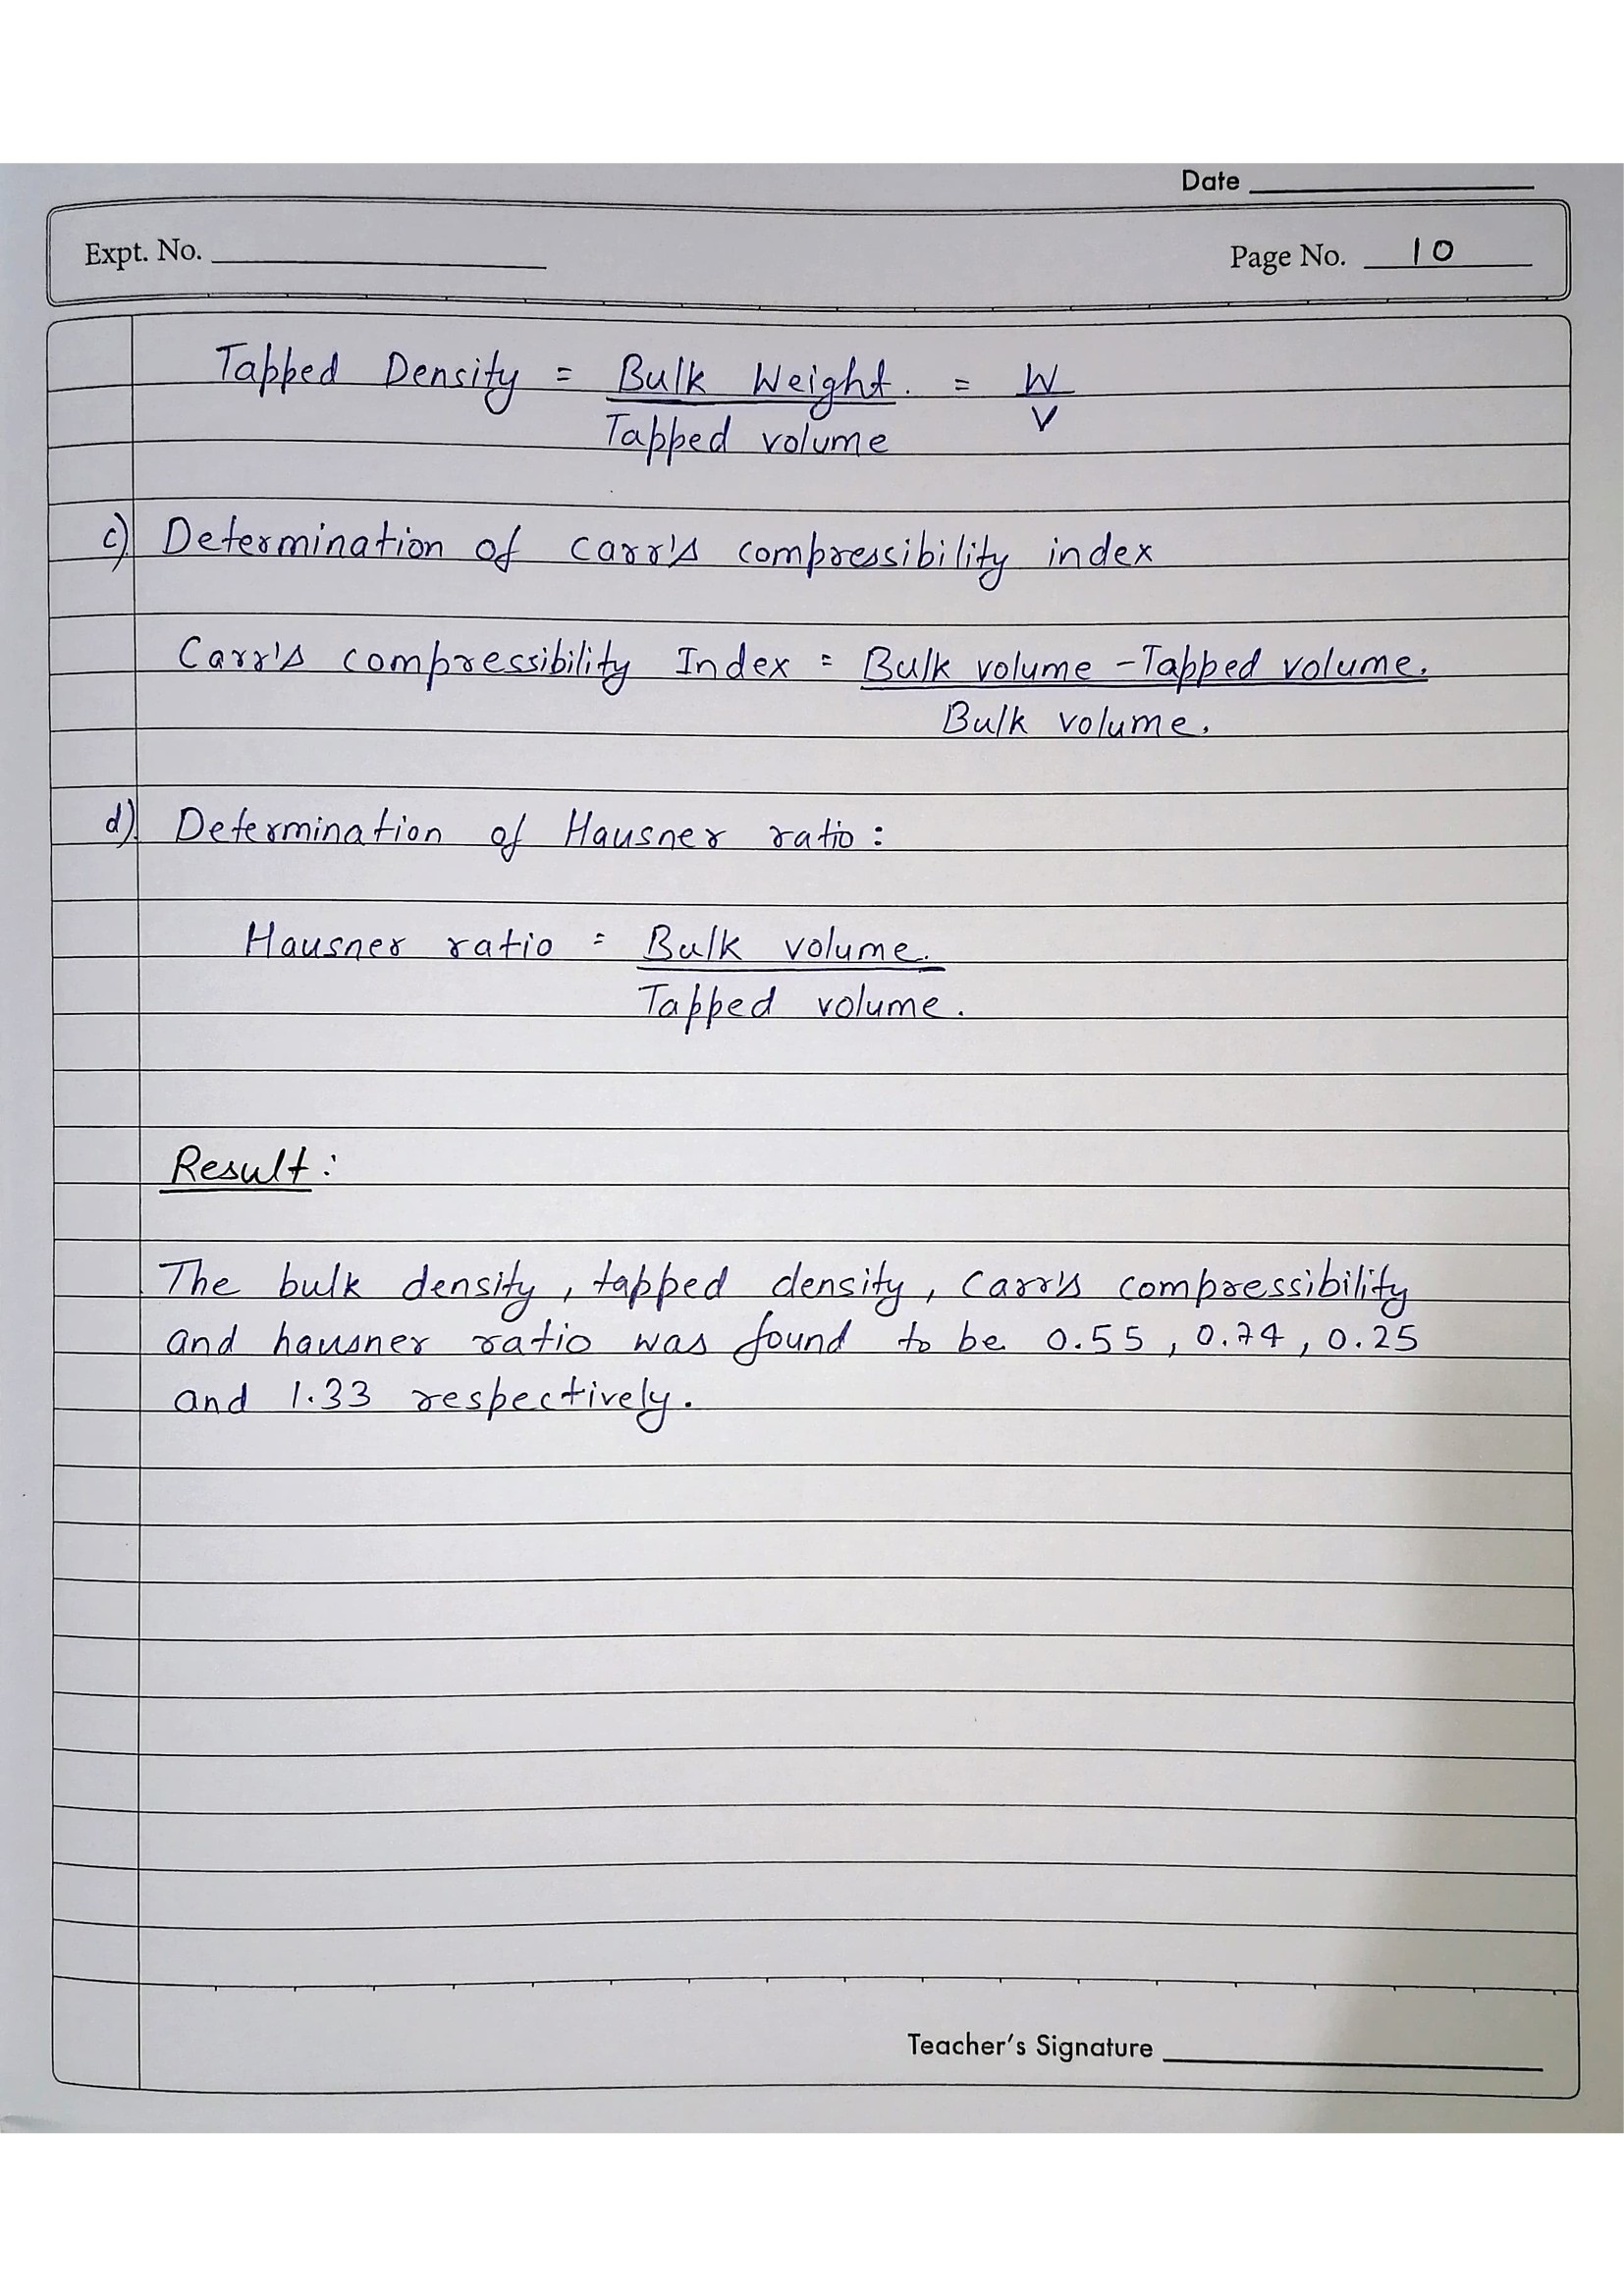 Date
Expt. No.
Page No. 10
Tapped Density = Bulk Weight. = W
Tapped volume V
c) Determination of Carr's compressibility index
Carr's compressibility Index = Bulk volume - Tapped volume.
Bulk volume.
d) Determination of Hausner ratio :
Hausner ratio = Bulk volume.
Tapped volume.
Result :
The bulk density, tapped density, Carr's compressibility
and hausner ratio was found to be 0.55, 0.74, 0.25
and 1.33 respectively.
Teacher's Signature